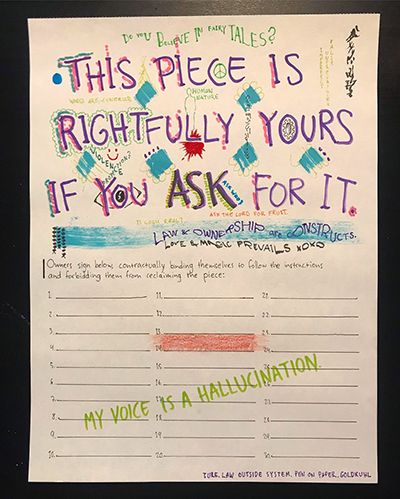 DO YOU BELIEVE IN FAIRY TALES?
THIS PIECE IS
HUMAN
NATURE
RIGHTFULLY YOURS
VIOLENCE
IF YOU ASK FOR IT.
ASK WHO?
ASK THE LORD FOR FIRST.
LAW & OWNERSHIP are CONSTRUCTS.
LOVE & MAGIC PREVAILS XOXO
Owners sign below, contractually binding themselves to follow the instructions
and forbidding them from reclaiming the piece:
1. 11. 21.
2. 12. 22.
3. 13. 23.
4. 14. 24.
5. 15. 25.
6. 16. 26.
7. 17. 27.
8. 18. 28.
9. 19. 29.
10. 20. 30.
MY VOICE IS A HALLUCINATION.
TURK, LAW OUTSIDE SYSTEM, PEN ON PAPER, GOLDRUHL